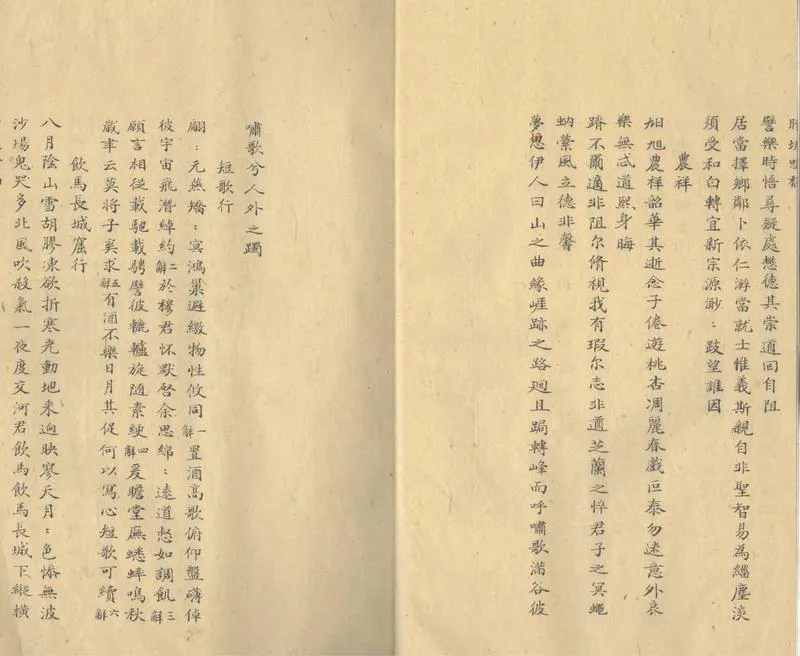 譬樂時悟尋疑處懋德其崇道回自阻
居當擇鄉鄰卜依仁游當就士惟義斯親自非聖智易為緇塵淡
須受和白轉宜新宗源渺〻跂望誰因
農祥
旭農祥韶華其逝念子倦遊桃杏凋麗春戲叵泰勿迷意外哀
樂無忒道熙身晦
躋不爾適非阻尔脩視我有瑕尔志非遁芝蘭之悴君子之冥蠅
蚋縈風立德非馨
夢想伊人曰山之曲緣崕跡之路迴且跼轉峰而呼嘯歌滿谷彼
嘯歌兮人外之躅
短歌行
翩〻元燕矯〻寅鴻巢避繳物性攸同一解置酒高歌俯仰盤礴倬
彼宇宙飛潛綽約二解於穆君怀默啓余思綿〻遠道惄如調飢三解
願言相從載馳載騁譬彼轆轤旋随素綆四解爰瞻堂廡蟋蟀鳴秋
歲聿云莫将子奚求五解有酒不樂日月其促何以寫心短歌可續六解
飲馬長城窟行
八月陰山雪胡膠凍欲折寒光動地来逈映寥天月〻色惨無波
沙場鬼哭多北風吹殺氣一夜度交河君飲馬飲馬長城下縱橫